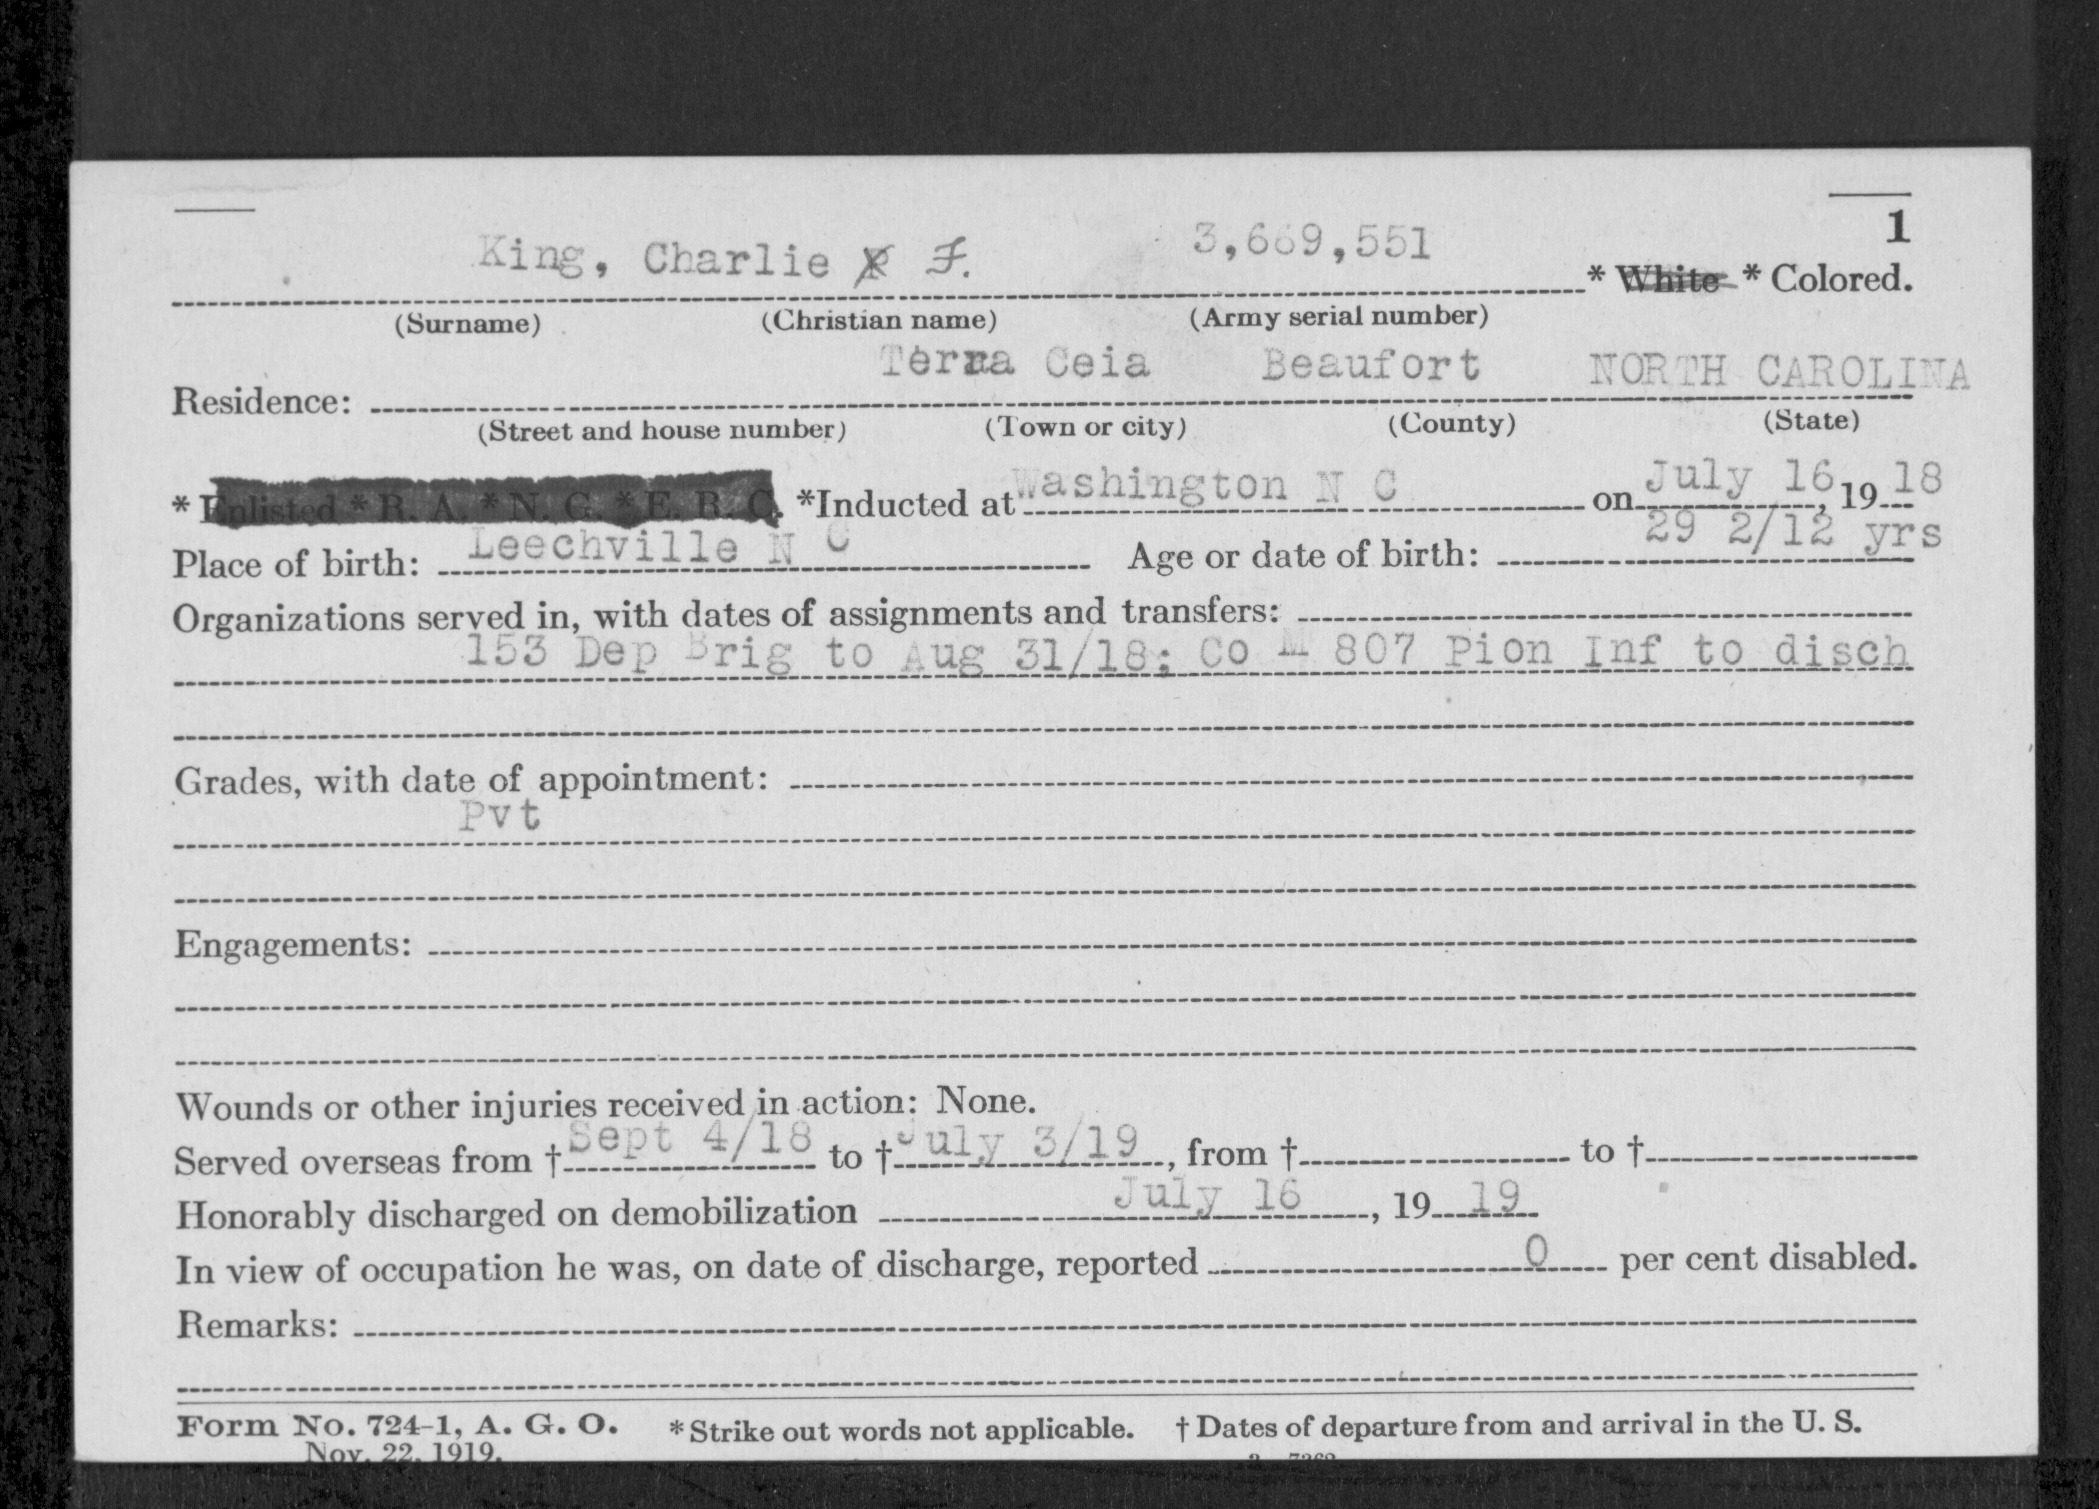 1
King, Charlie P F. 3,669,551 * White * Colored.
(Surname) (Christian name) (Army serial number)
Terra Ceia Beaufort NORTH CAROLINA
Residence:
(Street and house number) (Town or city) (County) (State)
* Enlisted * R. A. * N. G. * E. R. C. *Inducted at Washington N C on July 16, 19 18
Place of birth: Leechville N C Age or date of birth: 29 2/12 yrs
Organizations served in, with dates of assignments and transfers:
153 Dep Brig to Aug 31/18; Co M 807 Pion Inf to disch
Grades, with date of appointment:
Pvt
Engagements:
Wounds or other injuries received in action: None.
Served overseas from † Sept 4/18 to † July 3/19, from † to †
Honorably discharged on demobilization July 16, 19 19
In view of occupation he was, on date of discharge, reported 0 per cent disabled.
Remarks:
Form No. 724-1, A. G. O. * Strike out words not applicable. † Dates of departure from and arrival in the U. S.
Nov. 22, 1919.